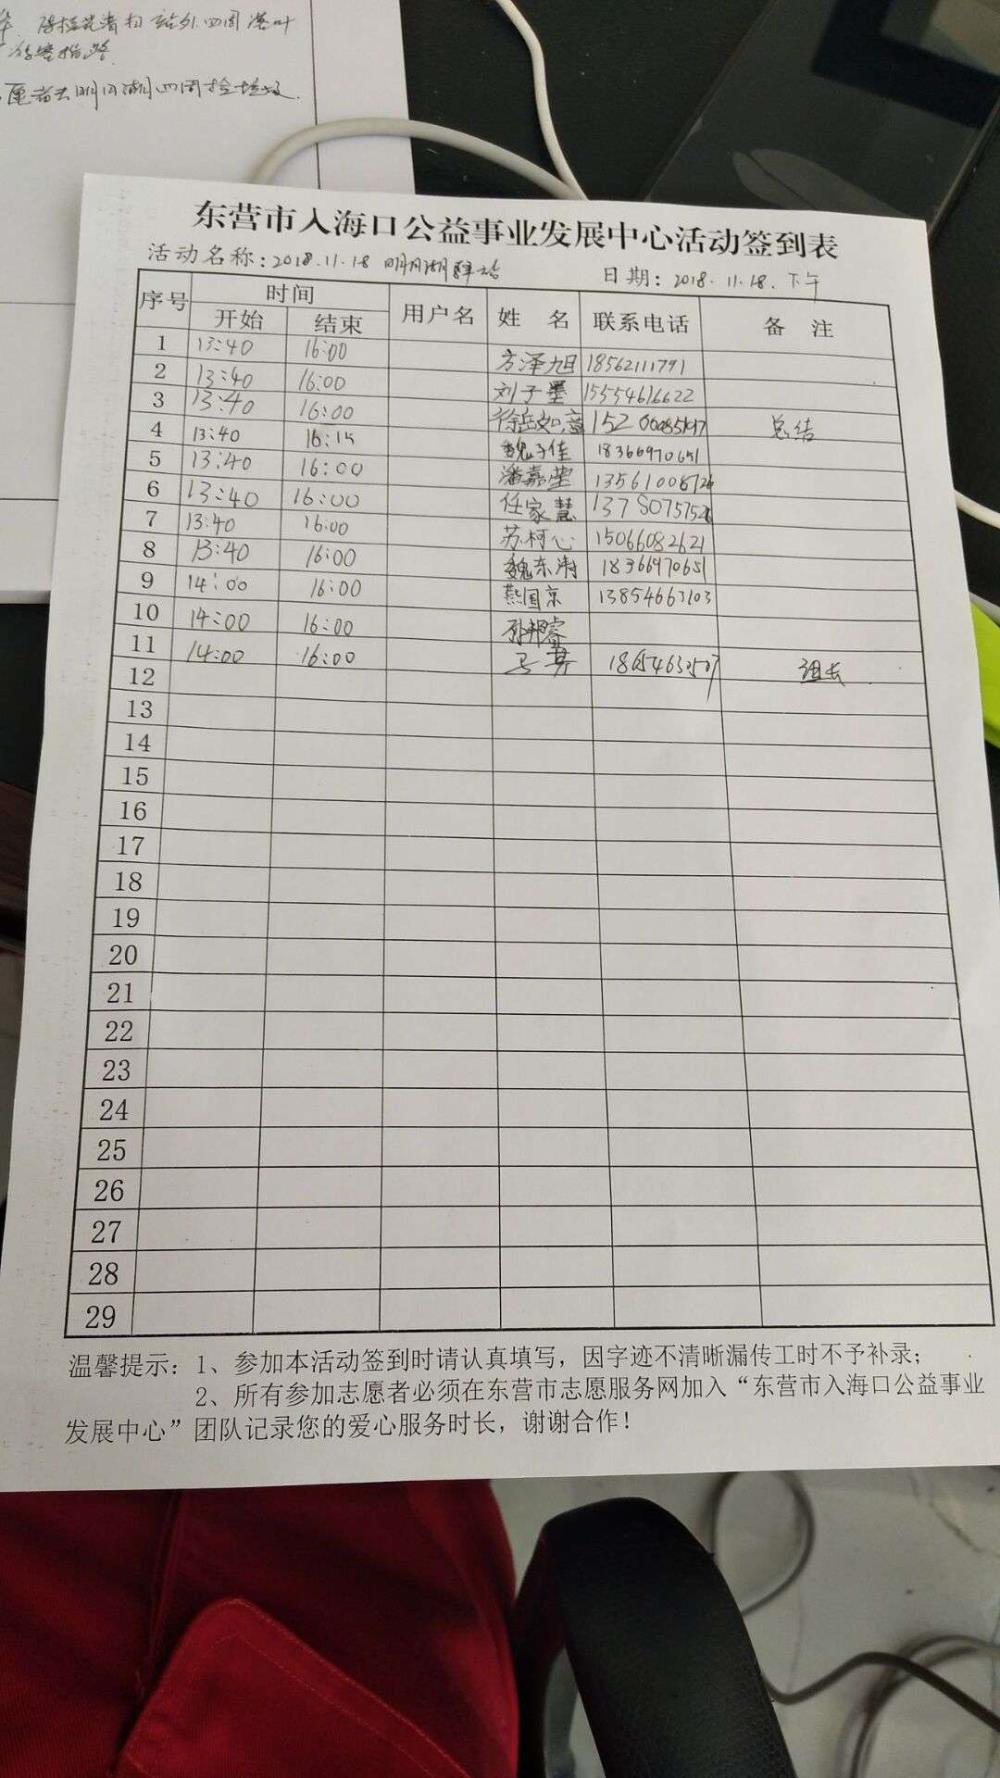 站外四周落叶
愿者去明月湖四周捡垃圾.
东营市入海口公益事业发展中心活动签到表
活动名称:2018.11.18 明月湖驿站 日期:2018.11.18.下午
序号 时间 用户名 姓 名 联系电话 备 注
开始 结束
1 13:40 16:00 方泽旭 18562111791
2 13:40 16:00 刘子墨 15554616622
3 13:40 16:00 徐岳如意 总结
4 13:40 16:15 魏子佳 18366970651
5 13:40 16:00 潘嘉莹
6 13:40 16:00 任家慧
7 13:40 16:00 苏柯心 15066082621
8 13:40 16:00 魏东涛 18366970651
9 14:00 16:00 燕国京 13854663103
10 14:00 16:00 孙邦睿
11 14:00 16:00 组长
12
13
14
15
16
17
18
19
20
21
22
23
24
25
26
27
28
29
温馨提示:1、参加本活动签到时请认真填写,因字迹不清晰漏传工时不予补录;
2、所有参加志愿者必须在东营市志愿服务网加入“东营市入海口公益事业
发展中心”团队记录您的爱心服务时长,谢谢合作!